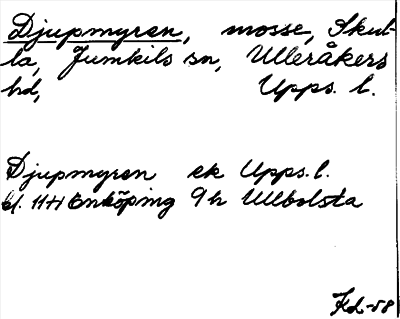 Djupmyren, mosse, Skut-
la, Jumkils sn, Ulleråkers
hd, Upps. l.
Djupmyren ek Upps. l.
bl. 11H Enköping 9h Ulbolsta